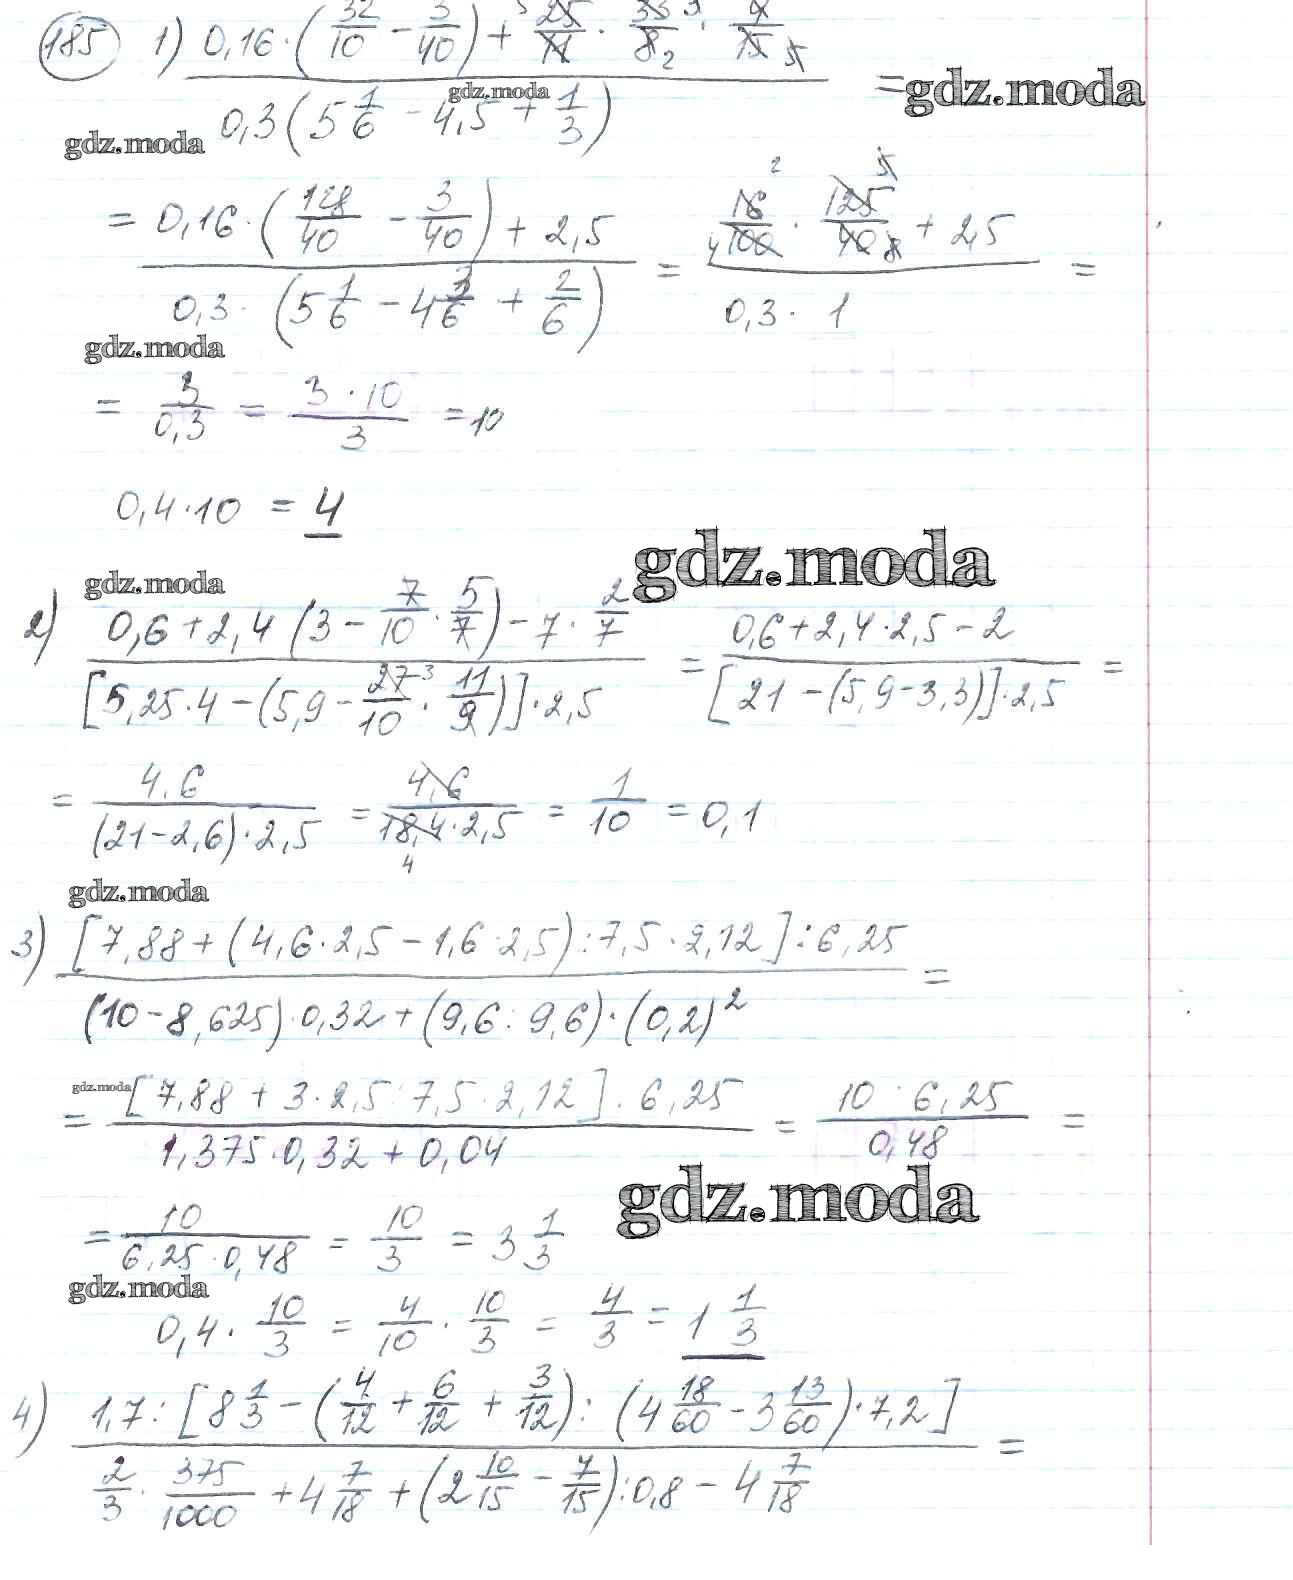 185 1) 0,16·(32/10 − 3/40) + 25/14 · 35/8 2 · 4/15
= gdz.moda
gdz.moda
gdz.moda
0,3(5 1/6 − 4,5 + 1/3)
= 0,16·(128/40 − 3/40) + 2,5 / 0,3·(5 1/6 − 4 3/6 + 2/6) = 16/100 · 125/40 + 2,5 / 0,3·1 =
gdz.moda
= 3/0,3 = 3·10/3 = 10
0,4·10 = 4
gdz.moda
gdz.moda
2) 0,6+2,4(3 − 7/10 · 5/7) − 7 · 2/7 / [5,25·4 − (5,9 − 27/10 · 11/9)]·2,5 = 0,6+2,4·2,5−2 / [21−(5,9−3,3)]·2,5 =
= 4,6 / (21−2,6)·2,5 = 4,6 / 18,4·2,5 = 1/10 = 0,1
gdz.moda
3) [7,88+(4,6·2,5−1,6·2,5):7,5·2,12]:6,25 / (10−8,625)·0,32+(9,6:9,6)·(0,2)² =
gdz.moda
= [7,88 + 3·2,5:7,5·2,12]:6,25 / 1,375·0,32 + 0,04 = 10:6,25 / 0,48 =
gdz.moda
= 10 / 6,25·0,48 = 10/3 = 3 1/3
gdz.moda
0,4 · 10/3 = 4/10 · 10/3 = 4/3 = 1 1/3
4) 1,7:[8 1/3 − (4/12 + 6/12 + 3/12):(4 18/60 − 3 13/60)·7,2] / 2/3 · 375/1000 + 4 7/18 + (2 10/15 − 7/15):0,8 − 4 7/18 =